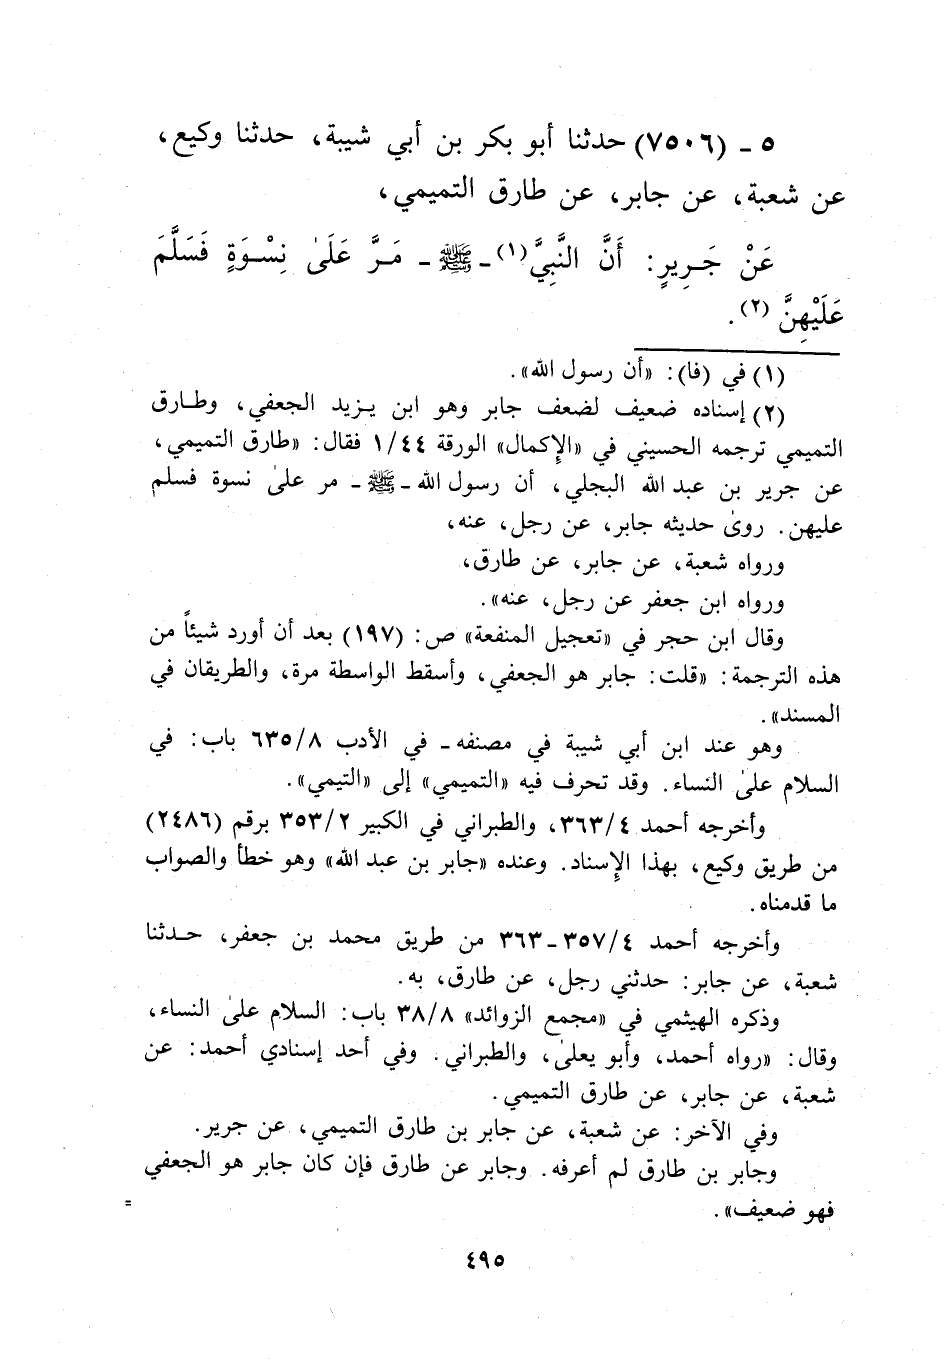 ٥ ـ (٧٥٠٦) حدثنا أبو بكر بن أبي شيبة، حدثنا وكيع،
عن شعبة، عن جابر، عن طارق التميمي،
عَنْ جَرِيرٍ: أَنَّ النَّبِيَّ(١) ـ ﷺ ـ مَرَّ عَلَىٰ نِسْوَةٍ فَسَلَّمَ
عَلَيْهِنَّ(٢).
(١) في (فا): «أن رسول الله».
(٢) إسناده ضعيف لضعف جابر وهو ابن يزيد الجعفي، وطارق
التميمي ترجمه الحسيني في «الإكمال» الورقة ١/٤٤ فقال: «طارق التميمي،
عن جرير بن عبد الله البجلي، أن رسول الله ـ ﷺ ـ مر علىٰ نسوة فسلم
عليهن. روىٰ حديثه جابر، عن رجل، عنه،
ورواه شعبة، عن جابر، عن طارق،
ورواه ابن جعفر عن رجل، عنه».
وقال ابن حجر في «تعجيل المنفعة» ص: (١٩٧) بعد أن أورد شيئاً من
هذه الترجمة: «قلت: جابر هو الجعفي، وأسقط الواسطة مرة، والطريقان في
المسند».
وهو عند ابن أبي شيبة في مصنفه ـ في الأدب ٦٣٥/٨ باب: في
السلام علىٰ النساء. وقد تحرف فيه «التميمي» إلى «التيمي».
وأخرجه أحمد ٣٦٣/٤، والطبراني في الكبير ٣٥٣/٢ برقم (٢٤٨٦)
من طريق وكيع، بهذا الإسناد. وعنده «جابر بن عبد الله» وهو خطأ والصواب
ما قدمناه.
وأخرجه أحمد ٣٥٧/٤ ـ ٣٦٣ من طريق محمد بن جعفر، حدثنا
شعبة، عن جابر: حدثني رجل، عن طارق، به.
وذكره الهيثمي في «مجمع الزوائد» ٣٨/٨ باب: السلام علىٰ النساء،
وقال: «رواه أحمد، وأبو يعلىٰ، والطبراني. وفي أحد إسنادي أحمد: عن
شعبة، عن جابر، عن طارق التميمي.
وفي الآخر: عن شعبة، عن جابر بن طارق التميمي، عن جرير.
وجابر بن طارق لم أعرفه. وجابر عن طارق فإن كان جابر هو الجعفي
فهو ضعيف». =
٤٩٥